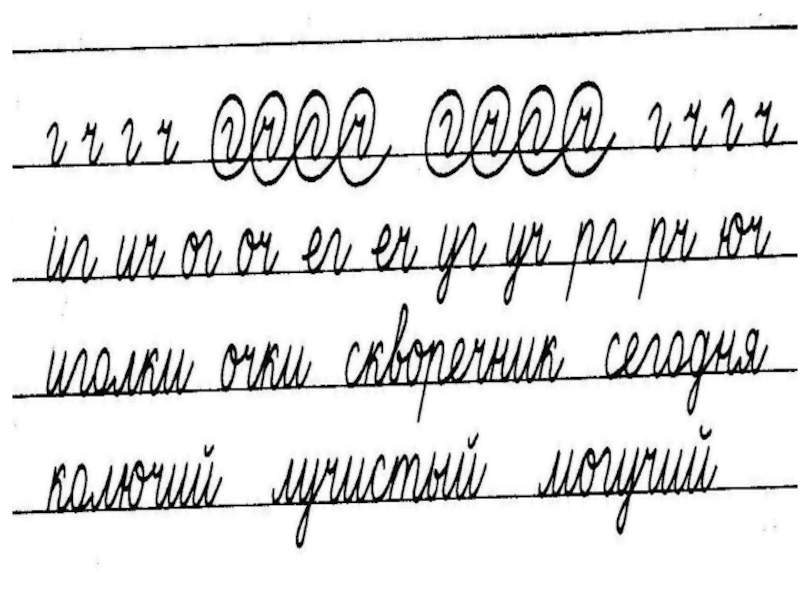 г ч г ч г ч г ч г ч г ч г ч г ч
иг ич ог оч ег еч уг уч рг рч юч
иголки очки скворечник сегодня
колючий лучистый могучий